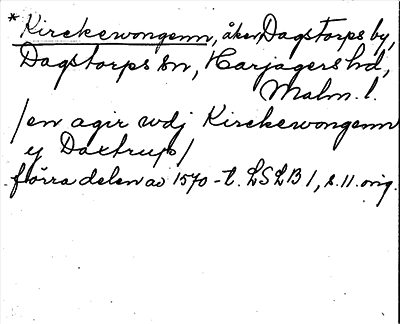 *Kirckewongenn, åker, Dagstorps by,
Dagstorps sn, Harjagers hd,
Malm. l.
/en agir wdj Kirckewongenn
y Daxtrup/
förra delen av 1570-t. LSLB 1, s. 11. orig.